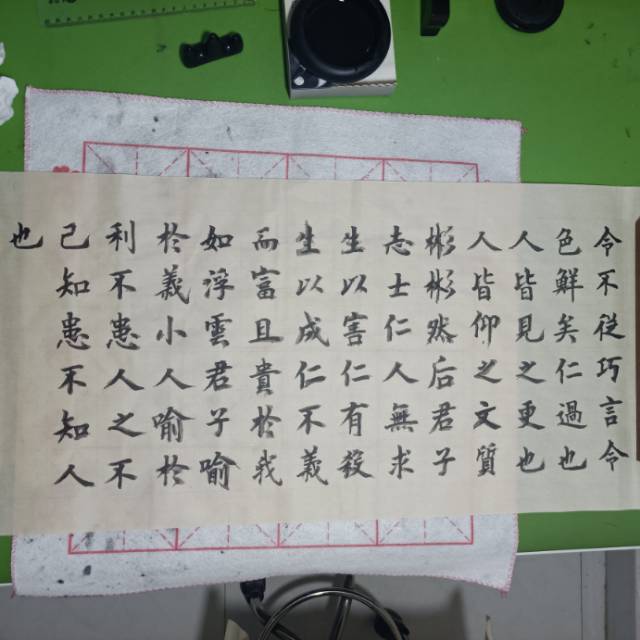 今不從巧言令
色鮮矣仁過也
人皆見之更也
人皆仰之文質
彬彬然后君子
志士仁人無求
生以害仁有殺
生以成仁不義
而富且貴於我
如浮雲君子喻
於義小人喻於
利不患人之不
己知患不知人
也